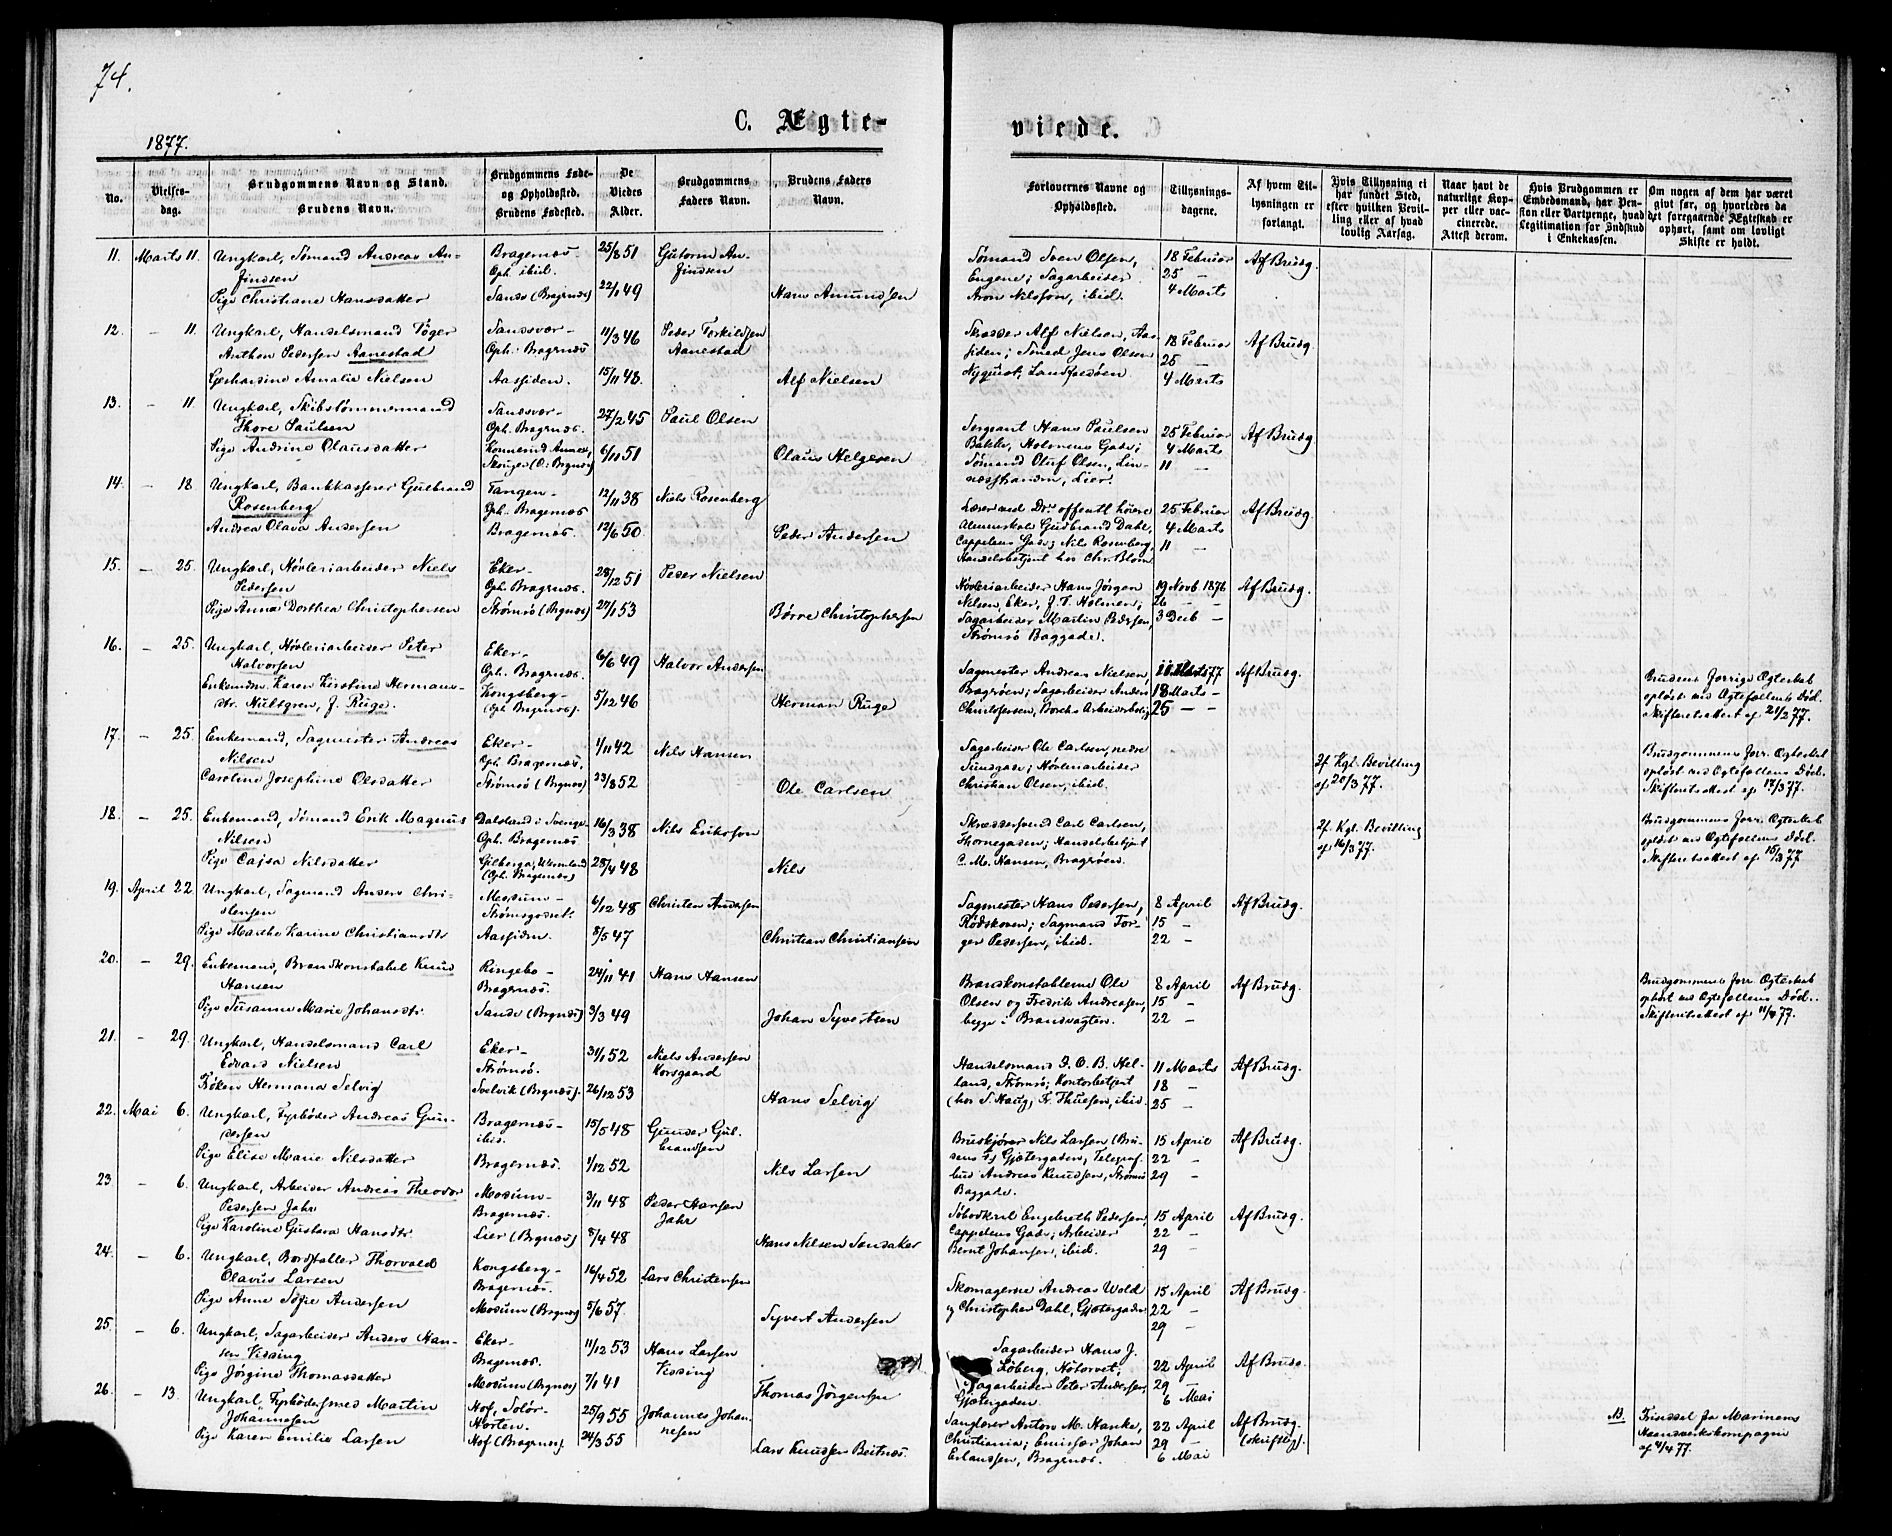 74.
C. Ægte-
viede.
1877.
No.
Vielses-
dag.
Brudgommens Navn og Stand.
Brudens Navn.
Brudgommens Føde-
og Opholdssted.
Brudens Fødested.
De
Viedes
Alder.
Brudgommens
Faders Navn.
Brudens Faders
Navn.
Forlovernes Navne og
Opholdssted.
Tillysnings-
dagene.
Af hvem Til-
lysningen er
forlangt.
Hvis Tillysning ei
har fundet Sted,
efter hvilken Bevil-
ling eller af hvad
lovlig Aarsag.
Naar havt de
naturlige Kop-
per eller vac-
cinerede.
Attest derom.
Hvis Brudgommen er
Embedsmand, har Pen-
sion eller Vartpenge, hvad
Legitimation for Indskud
i Enkekassen.
Om nogen af dem har været
givt før, og hvorledes da
det foregaaende Ægteskab er
ophørt, samt om lovligt
Skifte er holdt.
11. Marts 11. Ungkarl, Sømand Andreas An- Bragernæs- 25/8 51 Gutorm An- Sømand Sven Olsen, 18 Februar Af Brudg.
findsen Oph. ibid. findsen Engene; Sagarbeider 25 —
Pige Christiane Hansdatter Sande (Bragnæs) 22/1 49 Hans Amundsen Aron Nilsson, ibid. 4 Marts
12. — 11. Ungkarl, Handelsmand Tøger Sandsvær- 11/3 46 Peder Torkildsen Skrædder Alf Nielsen, Aas- 18 Februar Af Brudg.
Anthon Pedersen Aanestad Oph. Bragernæs Aanestad siden; Smed Jens Olsen 25 —
Gerhardine Amalie Nielsen Aassiden. 15/11 48. Alf Nielsen Nyquist, Landfaldøen 4 Marts
13. — 11. Ungkarl, Skibstømmermand Sandsvær- 27/2 45 Paul Olsen Sergeant Hans Paulsen 25 Februar Af Brudg.
Thore Paulsen Oph. Bragnæs. Bakke, Holmens Gade; 4 Marts
Pige Andrine Olausdatter Konnerud Annex, Skouger (O: Brgnæs) 6/11 51 Olaus Helgesen Sømand Oluf Olsen, Lin- 11 —
næsstranden, Lier.
14. — 18 Ungkarl, Bankkasserer Gulbrand Tangen- 12/11 38 Niels Rosenberg Lærer ved Drs. offentl høiere 25 Februar Af Brudg.
Rosenberg Oph. Bragernæs Almueskole Gudbrand Dahl, 4 Marts
Andrea Olava Andersen Bragernæs. 12/6 50. Peder Andersen Cappelens Gade; Nils Rosenberg, 11 —
Handelsbetjent hos Chr. Blom
15. — 25. Ungkarl, Høvleriarbeider Niels Eker- 28/12 51 Peder Nielsen Høvleriarbeider Hans Jørgen 19 Novb 1876 Af Brudg.
Pedersen Oph. Bragernæs. Nilsen, Eker, f. T. Holmen; 26 — —
Pige Anna Dorthea Christophersen Strømsø (Bragnæs) 27/1 53 Børre Christophersen Sagarbeider Martin Pedersen, 3 Decb —
Strømsø Baggade.
16. — 25. Ungkarl, Høvleriarbeider Peter Eker- 6/6 49 Halvor Andersen Sagmester Andreas Nielsen, 11 Marts 77 Af Brudg. Brudens forrige Ægteskab
Halvorsen Oph. Bragernæs. Bragerøen; Sagarbeider Anders 18 Marts — opløst ved Ægtefællens Død.
Enkemdm. Karen Kirstine Hermans- Kongsberg- 5/12 46 Herman Ruge Christofersen, Borchs Arbeiderbolig 25 — — Skifteretsattest af 21/2 77.
dtr. Hultgren, f. Ruge. (Oph. Bragernæs).
17. — 25. Enkemand, Sagmester Andreas Eker- 1/11 42 Nils Hansen Sagarbeider Ole Carlsen, nedre Brudgommens forr. Ægteskab
Nilsen Oph. Bragernæs. Sundgade; Høvleriarbeider If. Kgl. Bevilling opløst ved Ægtefællens Død.
Caroline Josephine Olsdatter Strømsø (Bragnæs) 23/8 52 Ole Carlsen Christian Olsen, ibid. af 20/3 77. Skifteretsattest af 17/3 77.
18. — 25. Enkemand, Sømand Erik Magnus Dalsland i Sverige- 16/3 38 Nils Eriksson Skræddersvend Carl Carlsen, If. Kgl. Bevilling Brudgommens forr. Ægteskab
Nilsen Oph. Bragernæs Thornegaden; Handelsbetjent af 16/3 77. opløst ved Ægtefællens Død.
Pige Cajsa Nilsdatter Gilberga, Wermland (Oph. Bragernæs) 28/4 48 Nils C. M. Hansen, Bragerøen. Skifteretsattest af 15/3 77
19. April 22. Ungkarl, Sagmand Anders Chri- Modum- 6/12 48 Christen Andersen Sagmester Hans Pedersen, 8 April Af Brudg.
stensen Strømsgodset. Rødskoven; Sagmand Tor- 15 —
Pige Marthe Karine Christiansdtr Aassiden. 8/5 47 Christian Christiansen ger Pedersen, ibid. 22 —
20. — 29. Enkemand, Brandkonstabel Knud Ringebo- 24/11 41 Hans Hansen Brandkonstablerne Ole 8 April Af Brudg. Brudgommens forr. Ægteskab
Hansen Bragernæs. Olsen og Fredrik Andreasen, 15 — opløst ved Ægtefællens Død.
Pige Susanne Marie Johansdtr. Sande (Brgnæs) 3/3 49 Johan Syvertsen begge i Brandvagten. 22 — Skifteretsattest af 11/4 77.
21. — 29. Ungkarl, Handelsmand Carl Eker- 31/1 52 Niels Andersen Handelsmand I. O. B. Hel- 11 Marts Af Brudg.
Edvard Nielsen Strømsø. Korsgaard land, Strømsø; Kontorbetjent 18 —
Frøken Hermana Selvig Svelvik (Brgnæs). 26/12 53 Hans Selvig (hos S. Haug) Fr. Thuesen, ibid. 25 —
22. Mai 6. Ungkarl, Fyrbøder Andreas Gun- Bragernæs- 15/5 48 Gunder Gul- Bruskjører Nils Larsen (Bru- 15 April Af Brudg.
dersen ibid. brandsen dens F.) Gjetergaden; Telegraf- 22 —
Pige Elise Marie Nilsdatter Bragernæs. 1/12 52 Nils Larsen bud Andreas Knudsen, Strømsø 29 —
Baggade.
23. — 6. Ungkarl, Arbeider Andreas Theodor Modum- 3/11 48 Peder Hansen Søbodkarl Engebreth Pedersen, 15 April Af Brudg.
Pedersen Jahr Bragernæs. Jahr Cappelens Gade; Arbeider 22 —
Pige Karoline Gustava Hansdtr. Lier (Brgnæs) 8/4 48 Hans Nilsen Sandaker Bernt Johansen, ibid. 29 —
24. — 6. Ungkarl, Bordfalter Thorvald Kongsberg- 16/4 52 Lars Christensen Skomagerne Andreas Wold 15 April Af Brudg.
Olavus Larsen Bragernæs. og Christopher Dahl, Gjetergaden 22 —
Pige Anne Sofie Andersen Modum (Brgnæs) 5/6 57 Syvert Andersen 29 —
25. — 6. Ungkarl, Sagarbeider Anders Han- Eker- 11/12 53 Hans Larsen Sagarbeider Hans J.
sen Vissing Bragernæs. Vissing Løberg, Høtorvet; 22 April Af Brudg.
Pige Jørgine Thomasdatter Modum (Brgnæs) 7/1 41 Thomas Jørgensen Sagarbeider Peter Andersen, 29 —
Gjetergaden. 6 Mai
26. — 13. Ungkarl, Fyrbødersmed Martin Hof, Solør- 25/9 55 Johannes Johan- Sanglærer Anton M. Hanke, 22 April Af Brudg. NB. Tinssel fra Marinens
Johannesen Horten. nesen Christiania; Emissær Johan 29 — (skriftlig). Haandverkskompagni
Pige Karen Emilie Larsen Hof (Bragernæs). 24/3 55 Lars Knudsen Beitnæs. Erlandsen, Bragernæs. 6 Mai af 4/4 77.